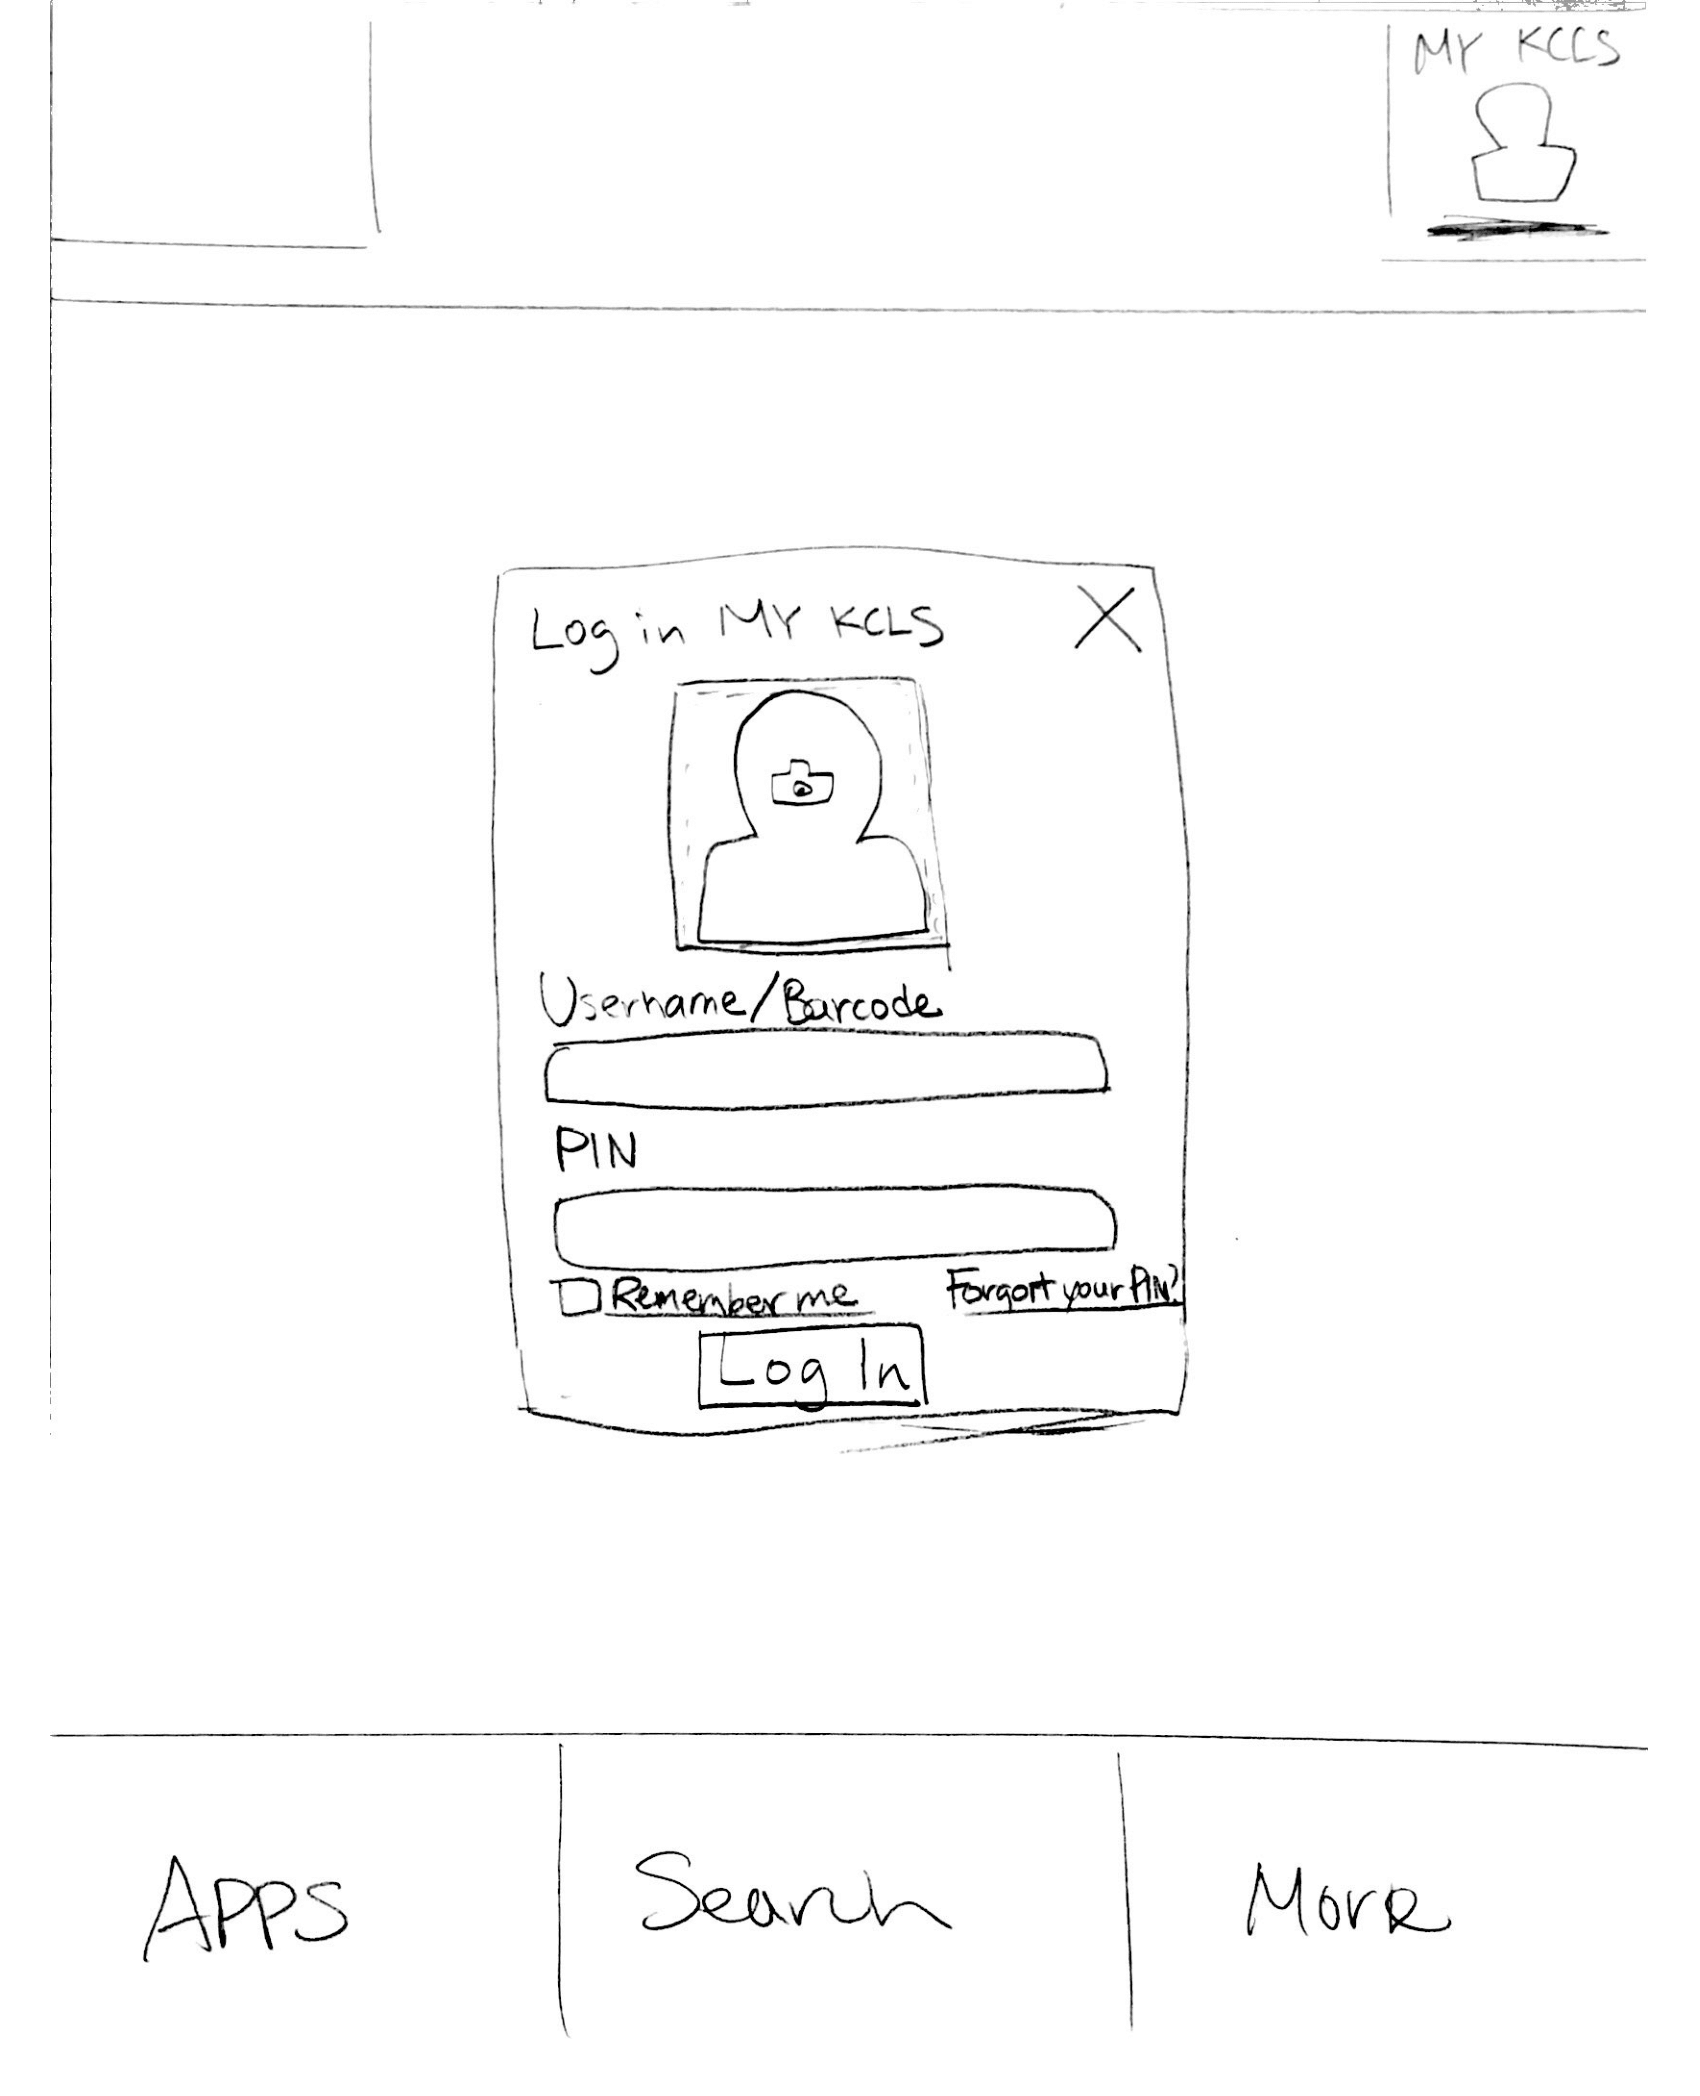 MY KCLS
Log in MY KCLS X
Username/Barcode
PIN
Remember me Forgort your PIN?
Log In
APPS Search More